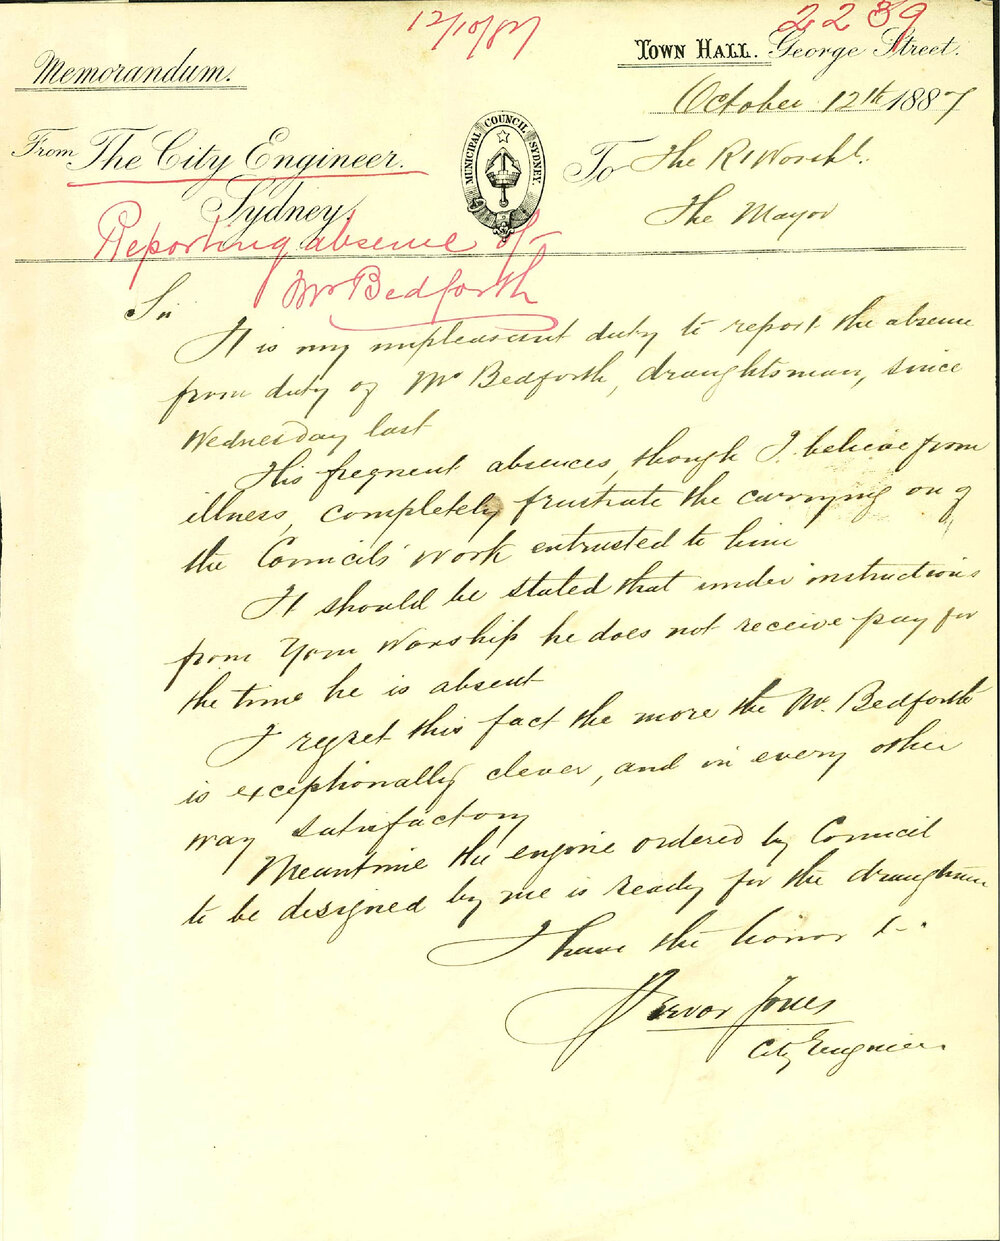 12/10/87
2239
Memorandum.
Town Hall. George Street.
October 12th 1887
From The City Engineer.
Sydney.
MUNICIPAL COUNCIL SYDNEY.
To The Rt Worshl.
The Mayor
Reporting absence of
Mr Bedforth
Sir
It is my unpleasant duty to report the absence
from duty of Mr Bedforth, draughtsman, since
Wednesday last
His frequent absences, though I believe from
illness, completely frustrate the carrying on of
the Councils' work entrusted to him
It should be stated that under instructions
from Your Worship he does not receive pay for
the time he is absent
I regret this fact the more the Mr. Bedforth
is exceptionally clever, and in every other
way satisfactory
Meantime the engine ordered by Council
to be designed by me is ready for the draughtsman
I have the honor &-
Trevor Jones
City Engineer